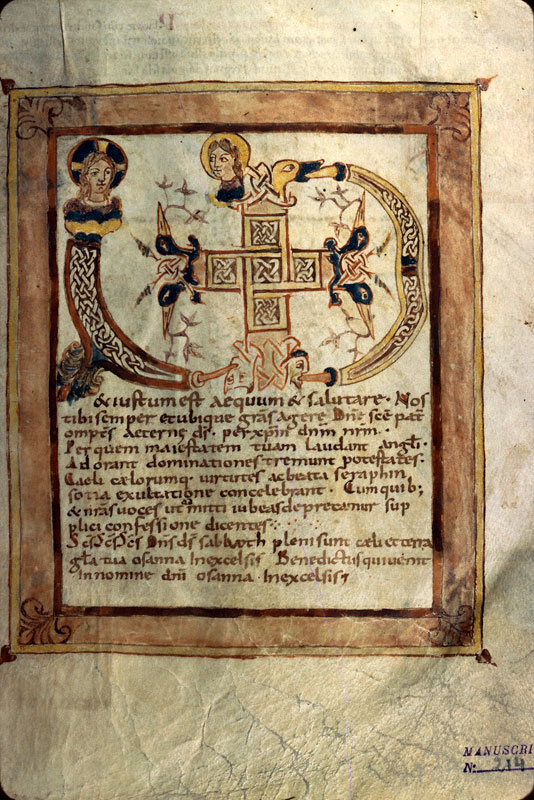 & iustum est Aequum & salutare. Nos
tibi semper et ubique grās agere. Dn̄e sc̄e pat̄
omp̄s Aeterne d̄s. per xp̄m dn̄m nr̄m.
Per quem maiestatem tuam laudant angl̄i.
Adorant dominationes tremunt potestates.
Caeli caelorumq. virtutes ac beata seraphin
socia exultatione concelebrant. Cum quib;
& nr̄as voces ut admitti iubeas deprecamur sup
plici confessione dicentes
Sc̄s Sc̄s Sc̄s Dn̄s d̄s sabaoth pleni sunt caeli et terra
gl̄a tua osanna Inexcelsis Benedictus qui uenit
In nomine dn̄i osanna Inexcelsis
MANUSCRI
No: 214